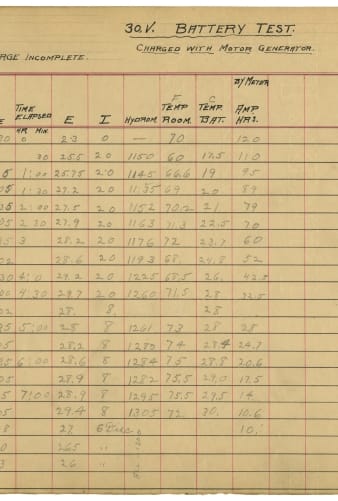 30.V. BATTERY TEST.
CHARGED WITH MOTOR GENERATOR.
ARGE INCOMPLETE.
BY METER
TIME ELAPSED E I HYDROM. F TEMP ROOM. C TEMP. BAT. AMP HRS.
HR MIN.
0 23 0 — 70 120
30 25.5 20 1150 60 17.5 110
1:00 25.75 20 1145 66.6 19 95
05 1:30 27.2 20 69 20 89
05 2:00 27.5 20 1152 70.2 21 79
05 2:30 27.9 20 1163 71.3 22.5 70
05 3 28.2 20 1176 72 23.7 60
02 28.6 20 1193 68. 24.8 52
30 4:0 29.2 20 1225 68.5 26. 42.5
00 4:30 29.7 20 1260 71.5 28 32.5
02 28. 8. 28
05 5:00 28 8 1261 73 28 28
05 28.2 8 1280 74 28.4 24.7
05 6:00 28.6 8 1284 75 28.8 20.6
05 28.9 8 1282 75.5 29.0 17.5
05 7:00 28.9 8 1295 75.5 29.5 14
05 29.4 8 1305 72 30. 10.6
8 27 10.
0 26.5 "
3 26 "